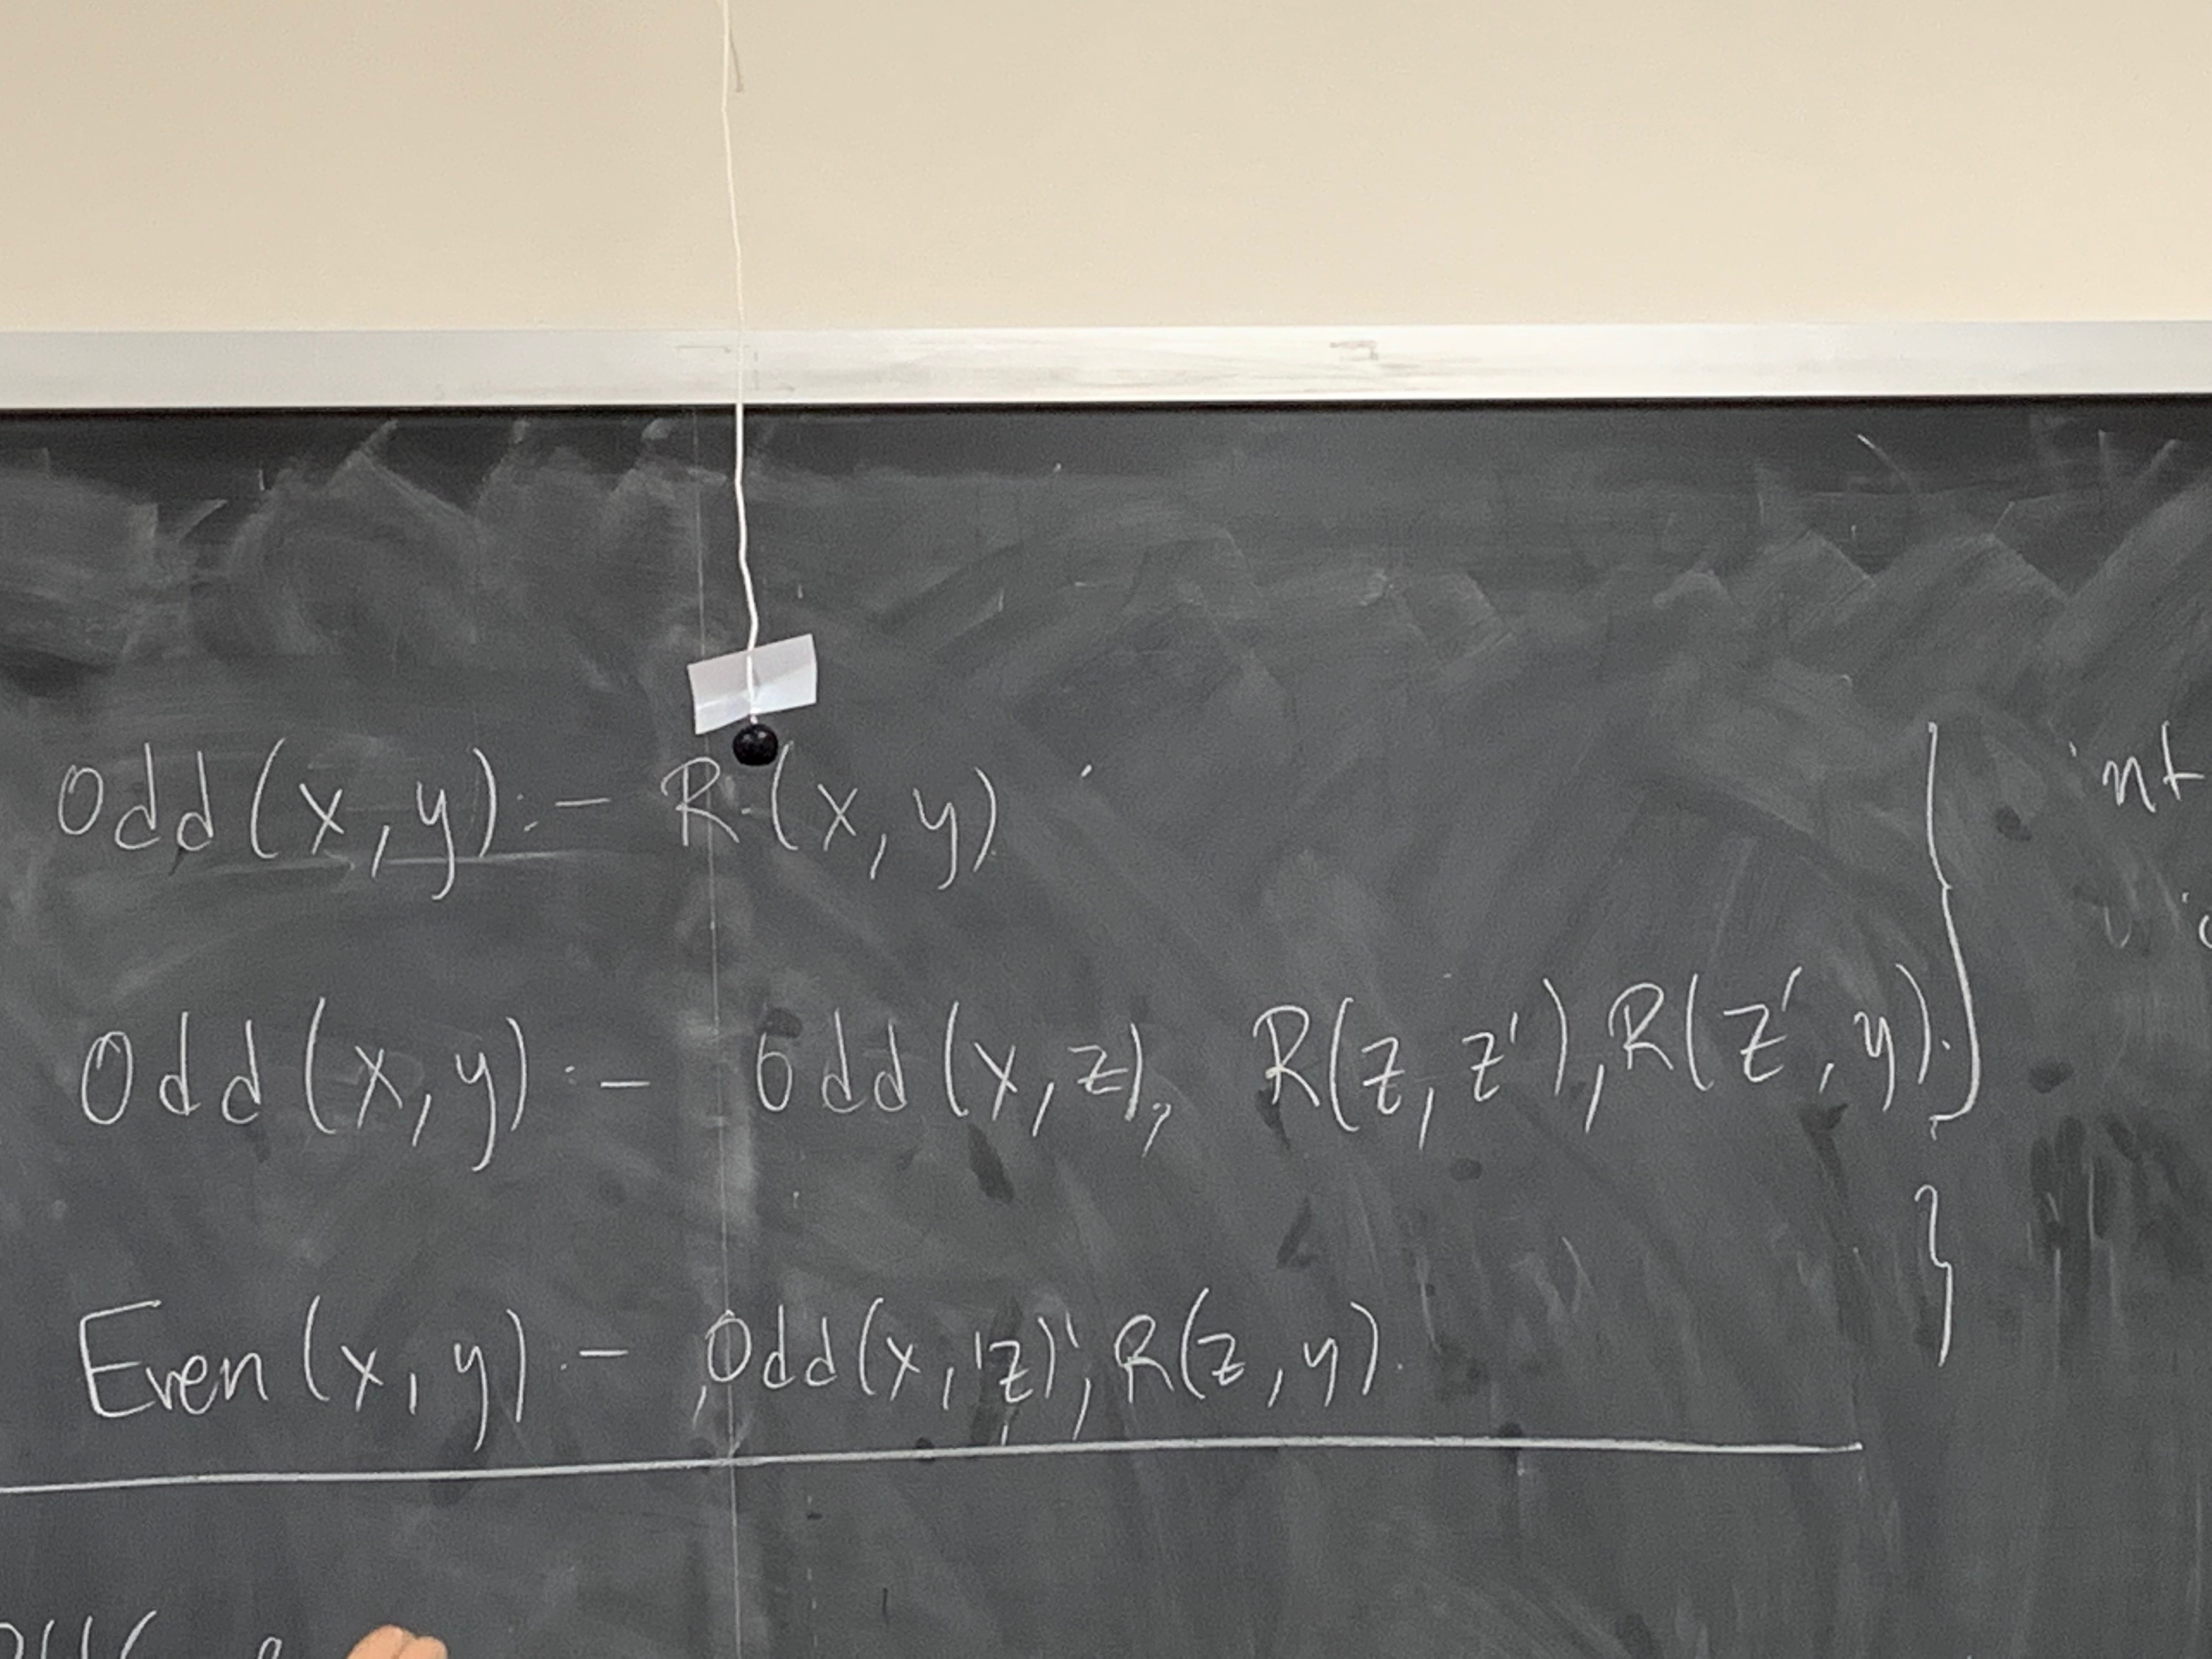 Odd(x,y):- R(x,y).
Odd(x,y):- Odd(x,z), R(z,z'),R(z',y).
Even(x,y):- Odd(x,z),R(z,y).